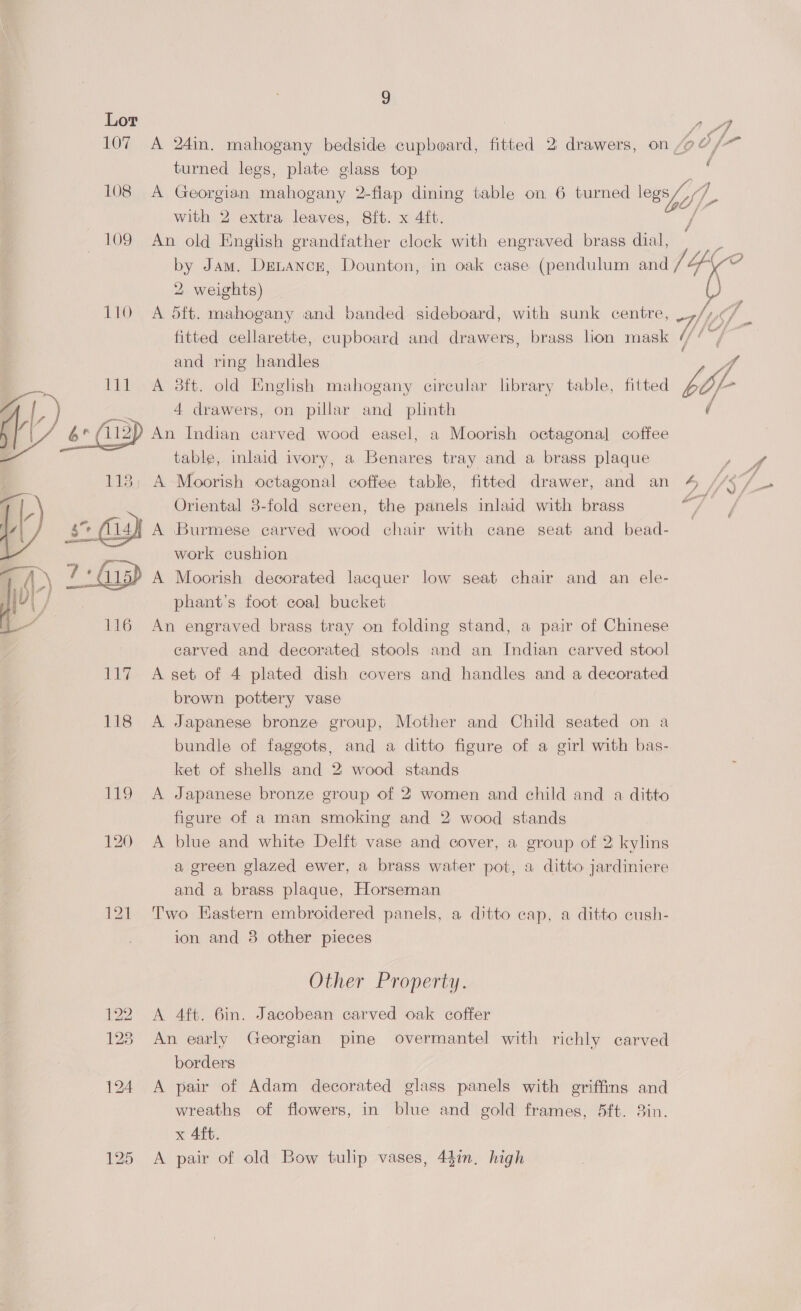 9
Lot
107 A 24in. mahogany bedside cupboard, fitted 2 drawers, on
turned legs, plate glass top
108 A Georgian mahogany 2-flap dining table on 6 turned legs
with 2 extra leaves, 8ft. x 4ft.
109 An old English grandfather clock with engraved brass dial,
by Jam. Delance, Dounton, in oak case (pendulum and
2 weights)
110 A 5ft. mahogany and banded sideboard, with sunk centre,
fitted cellarette, cupboard and drawers, brass lion mask
and ring handles
111 A 3ft. old English mahogany circular library table, fitted
4 drawers, on pillar and plinth
112 An Indian carved wood easel, a Moorish octagonal coffee
table, inlaid ivory, a Benares tray and a brass plaque
113 A Moorish octagonal coffee table, fitted drawer, and an
Oriental 3-fold screen, the panels inlaid with brass
114 A Burmese carved wood chair with cane seat and bead-
work cushion
115 A Moorish decorated lacquer low seat chair and an ele-
phant's foot coal bucket
116 An engraved brass tray on folding stand, a pair of Chinese
carved and decorated stools and an Indian carved stool
117 A set of 4 plated dish covers and handles and a decorated
brown pottery vase
118 A Japanese bronze group, Mother and Child seated on a
bundle of faggots, and a ditto figure of a girl with bas-
ket of shells and 2 wood stands
119 A Japanese bronze group of 2 women and child and a ditto
figure of a man smoking and 2 wood stands
120 A blue and white Delft vase and cover, a group of 2 kylins
a green glazed ewer, a brass water pot, a ditto jardiniere
and a brass plaque, Horseman
121 Two Eastern embroidered panels, a ditto cap, a ditto cush-
ion and 3 other pieces
Other Property.
122 A 4ft. 6in. Jacobean carved oak coffer
123 An early Georgian pine overmantel with richly carved
borders
124 A pair of Adam decorated glass panels with griffins and
wreaths of flowers, in blue and gold frames, 5ft. 3in.
x 4ft.
125 A pair of old Bow tulip vases, 4½in. high